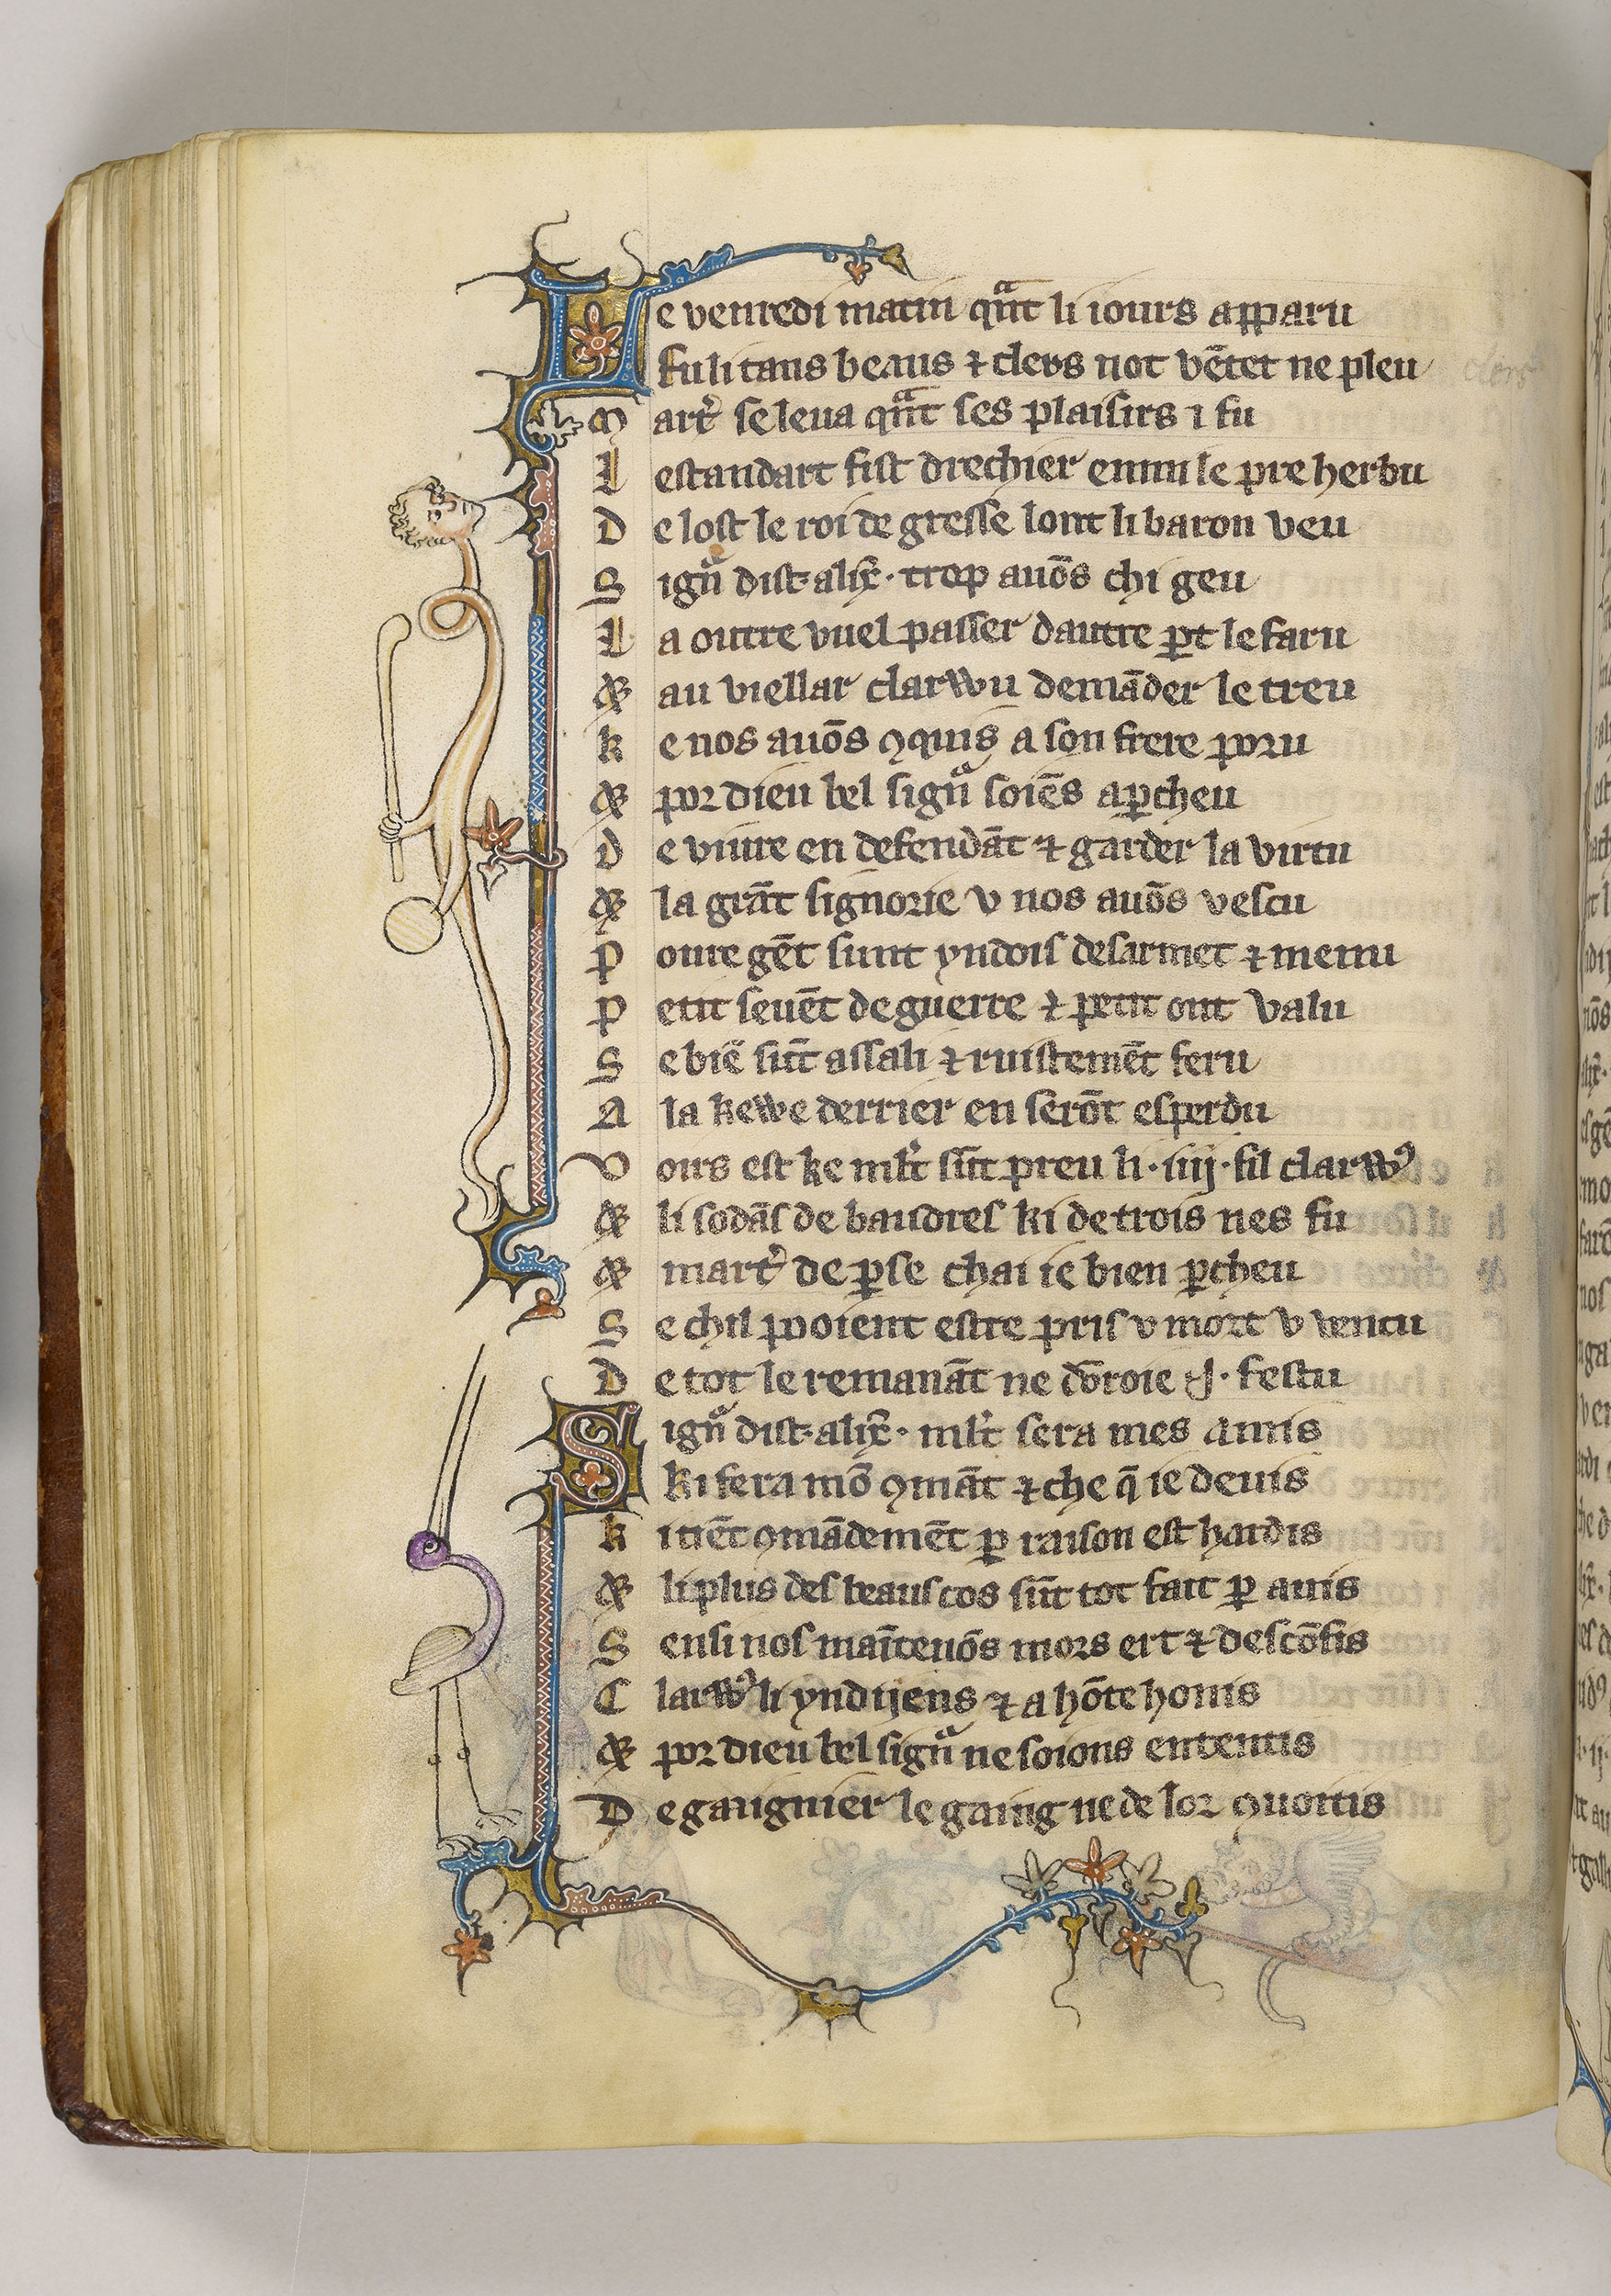 Le venredi matin qͣnt li iours apparu
fu li tans beaus ⁊ clers not vētet ne pleu
clers
Mart̾ se leua qͣnt ses plaisirs i fu
Lestandart fist drechier enmi le pre herbu
De lost le roi de gresse lont li baron veu
Signͬ dist·alix̄· trop auōs chi geu
La outre vuel passer dautre ꝑt le faru
⁊ au viellar clarwu demāder le treu
Ke nos auōs ꝯquis a son frere poru
⁊ por dieu bel signͬ soiēs aꝑcheu
De viure en defendāt ⁊ garder la virtu
⁊ la grāt signorie v nos auōs vescu
Poure gēt sunt yndois desarmet ⁊ menu
Petit seuēt de guerre ⁊ petit ont valu
Se biē sūt assali ⁊ ruistemēt feru
A la kewe derrier en serōt esperdu
Voirs est ke ml̾t sūt preu li ·iiij· fil clarwꝰ
⁊ li sodās de baudres ki de trois nes fu
⁊ mart̾ de ꝑse chai ie bien ꝑcheu
Se chil pooient estre pris v mort v vencu
De tot le remanāt ne dōroie ·j· festu
Signͬ dist·alix̄· ml̾t sera mes amis
Ki fera mō ꝯmāt ⁊ che q̄ ie deuis
Ki tiēt ꝯmādemēt ꝑ raison est hardis
⁊ li plus des beaus cos sūt tot fait ꝑ auis
Sensi nos maītenōs mors ert ⁊ descōfis
Clarwꝰ li yndijens ⁊ a hōte honis
⁊ por dieu bel signͬ ne soions ententis
De gaignier le gaing ne de lor ꝯuoitis